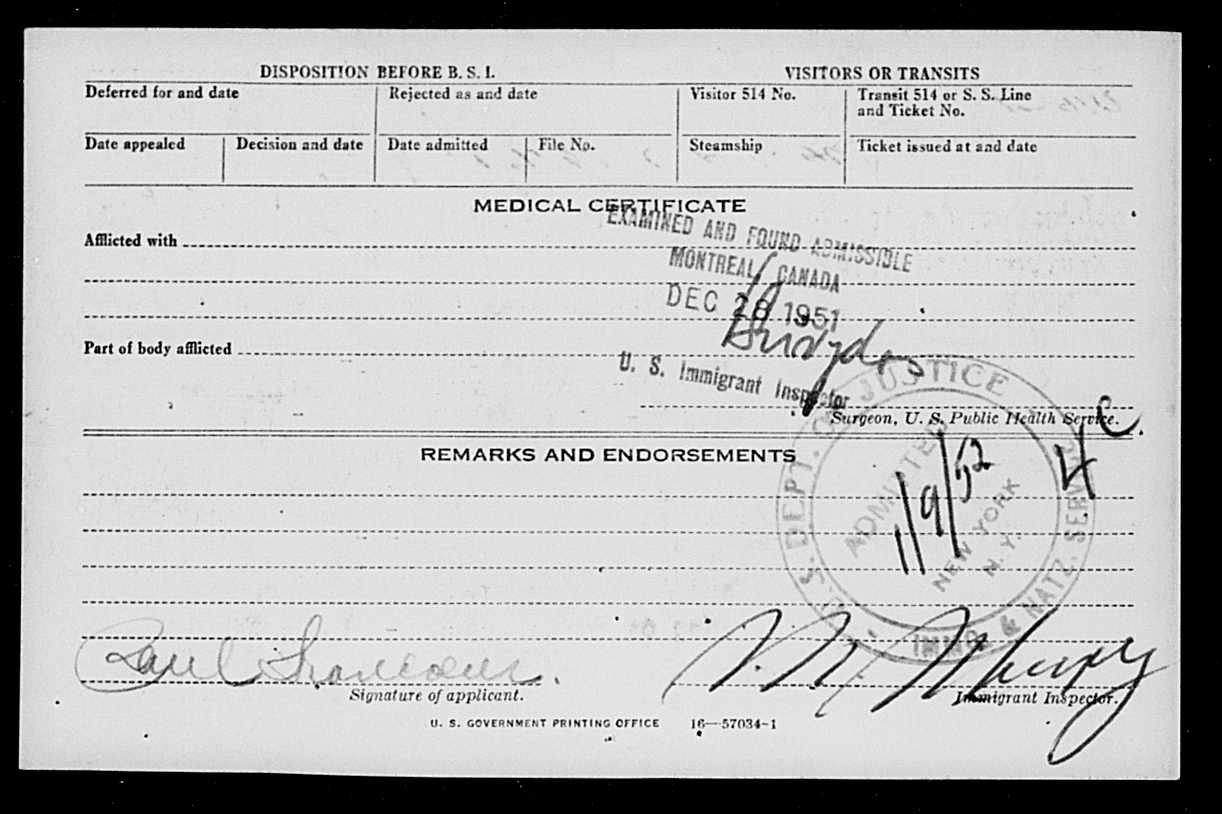 DISPOSITION BEFORE B. S. I.
VISITORS OR TRANSITS
Deferred for and date
Rejected as and date
Visitor 514 No.
Transit 514 or S. S. Line
and Ticket No.
Date appealed
Decision and date
Date admitted
File No.
Steamship
Ticket issued at and date
MEDICAL CERTIFICATE
EXAMINED AND FOUND ADMISSIBLE
Afflicted with
MONTREAL, CANADA
DEC 28 1951
Part of body afflicted
U. S. Immigrant Inspector
Surgeon, U. S. Public Health Service.
4 C.
REMARKS AND ENDORSEMENTS
U. S. DEPT. OF JUSTICE
IMMG. & NATZ. SERVICE
ADMITTED
1/9/52
NEW YORK
N. Y.
Paul
Signature of applicant.
Immigrant Inspector.
U. S. GOVERNMENT PRINTING OFFICE 16—57034-1